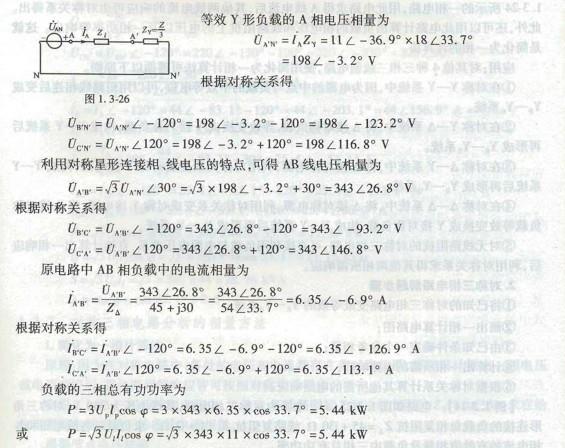 等效 Y 形负载的 A 相电压相量为
U̇A'N' = İAZY = 11∠-36.9°×18∠33.7°
=198∠-3.2° V
根据对称关系得
U̇AN
+A İA Zl A' ZY=Z/3
N N'
图 1.3-26
U̇B'N' = U̇A'N'∠-120° = 198∠-3.2°-120° = 198∠-123.2° V
U̇C'N' = U̇A'N'∠120° = 198∠-3.2°+120° = 198∠116.8° V
利用对称星形连接相、线电压的特点,可得 AB 线电压相量为
U̇A'B' = √3U̇A'N'∠30° = √3×198∠-3.2°+30° = 343∠26.8° V
根据对称关系得
U̇B'C' = U̇A'B'∠-120° = 343∠26.8°-120° = 343∠-93.2° V
U̇C'A' = U̇A'B'∠120° = 343∠26.8°+120° = 343∠146.8° V
原电路中 AB 相负载中的电流相量为
İA'B' = U̇A'B'/ZΔ = 343∠26.8°/45+j30 = 343∠26.8°/54∠33.7° = 6.35∠-6.9° A
根据对称关系得
İB'C' = İA'B'∠-120° = 6.35∠-6.9°-120° = 6.35∠-126.9° A
İC'A' = İA'B'∠120° = 6.35∠-6.9°+120° = 6.35∠113.1° A
负载的三相总有功功率为
P = 3UpIpcos φ = 3×343×6.35×cos 33.7° = 5.44 kW
或 P = √3UlIlcos φ = √3×343×11×cos 33.7° = 5.44 kW